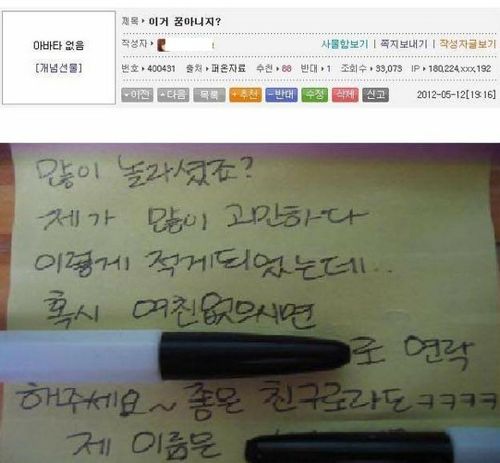 아바타 없음
[개념선물]
제목 ▸ 이거 꿈아니지?
작성자 ▸ 사물함보기 | 쪽지보내기 | 작성자글보기
번호 ▸ 400431 출처 ▸ 퍼온자료 추천 ▸ 88 반대 ▸ 1 조회수 ▸ 33,073 IP ▸ 180,224,xxx,192
이전 다음 목록 추천 반대 수정 삭제 신고 2012-05-12[19:16]
많이 놀라셨죠?
제가 많이 고민하다
이렇게 적게되었는데..
혹시 여친없으시면
로 연락
해주세요~ 좋은 친구로라도ㅋㅋㅋㅋ
제 이름은